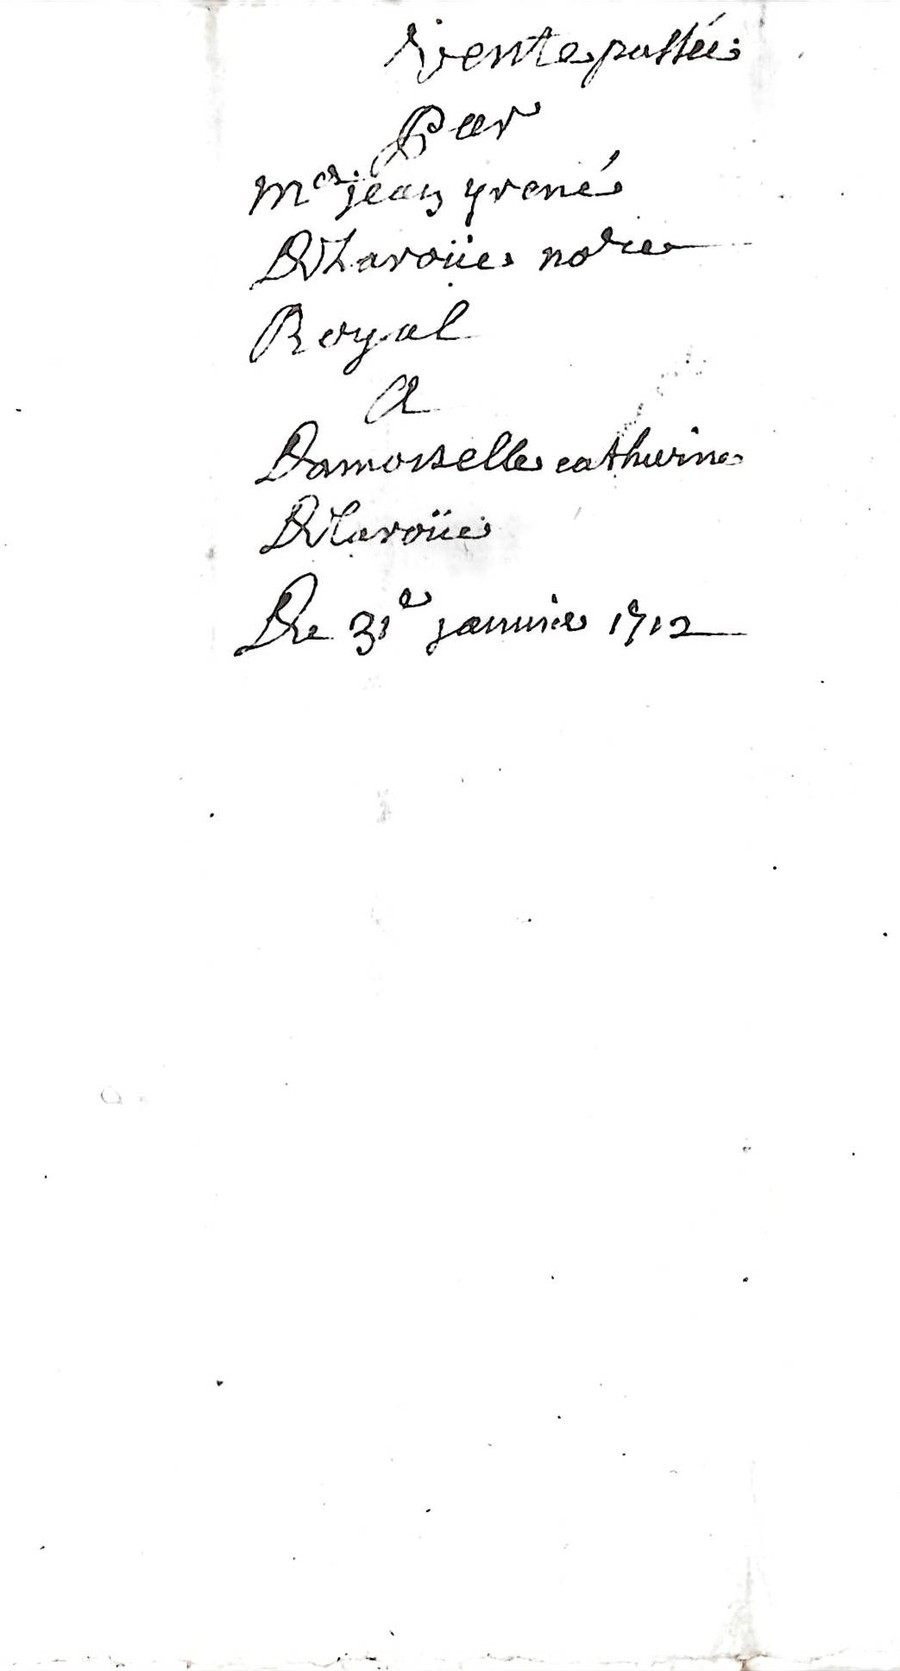 Vente passée
Par
Me. jean yrené
Delaroüe no.re
Royal
A
Damoiselle catherine
Delaroüe
De 31e janvier 1712